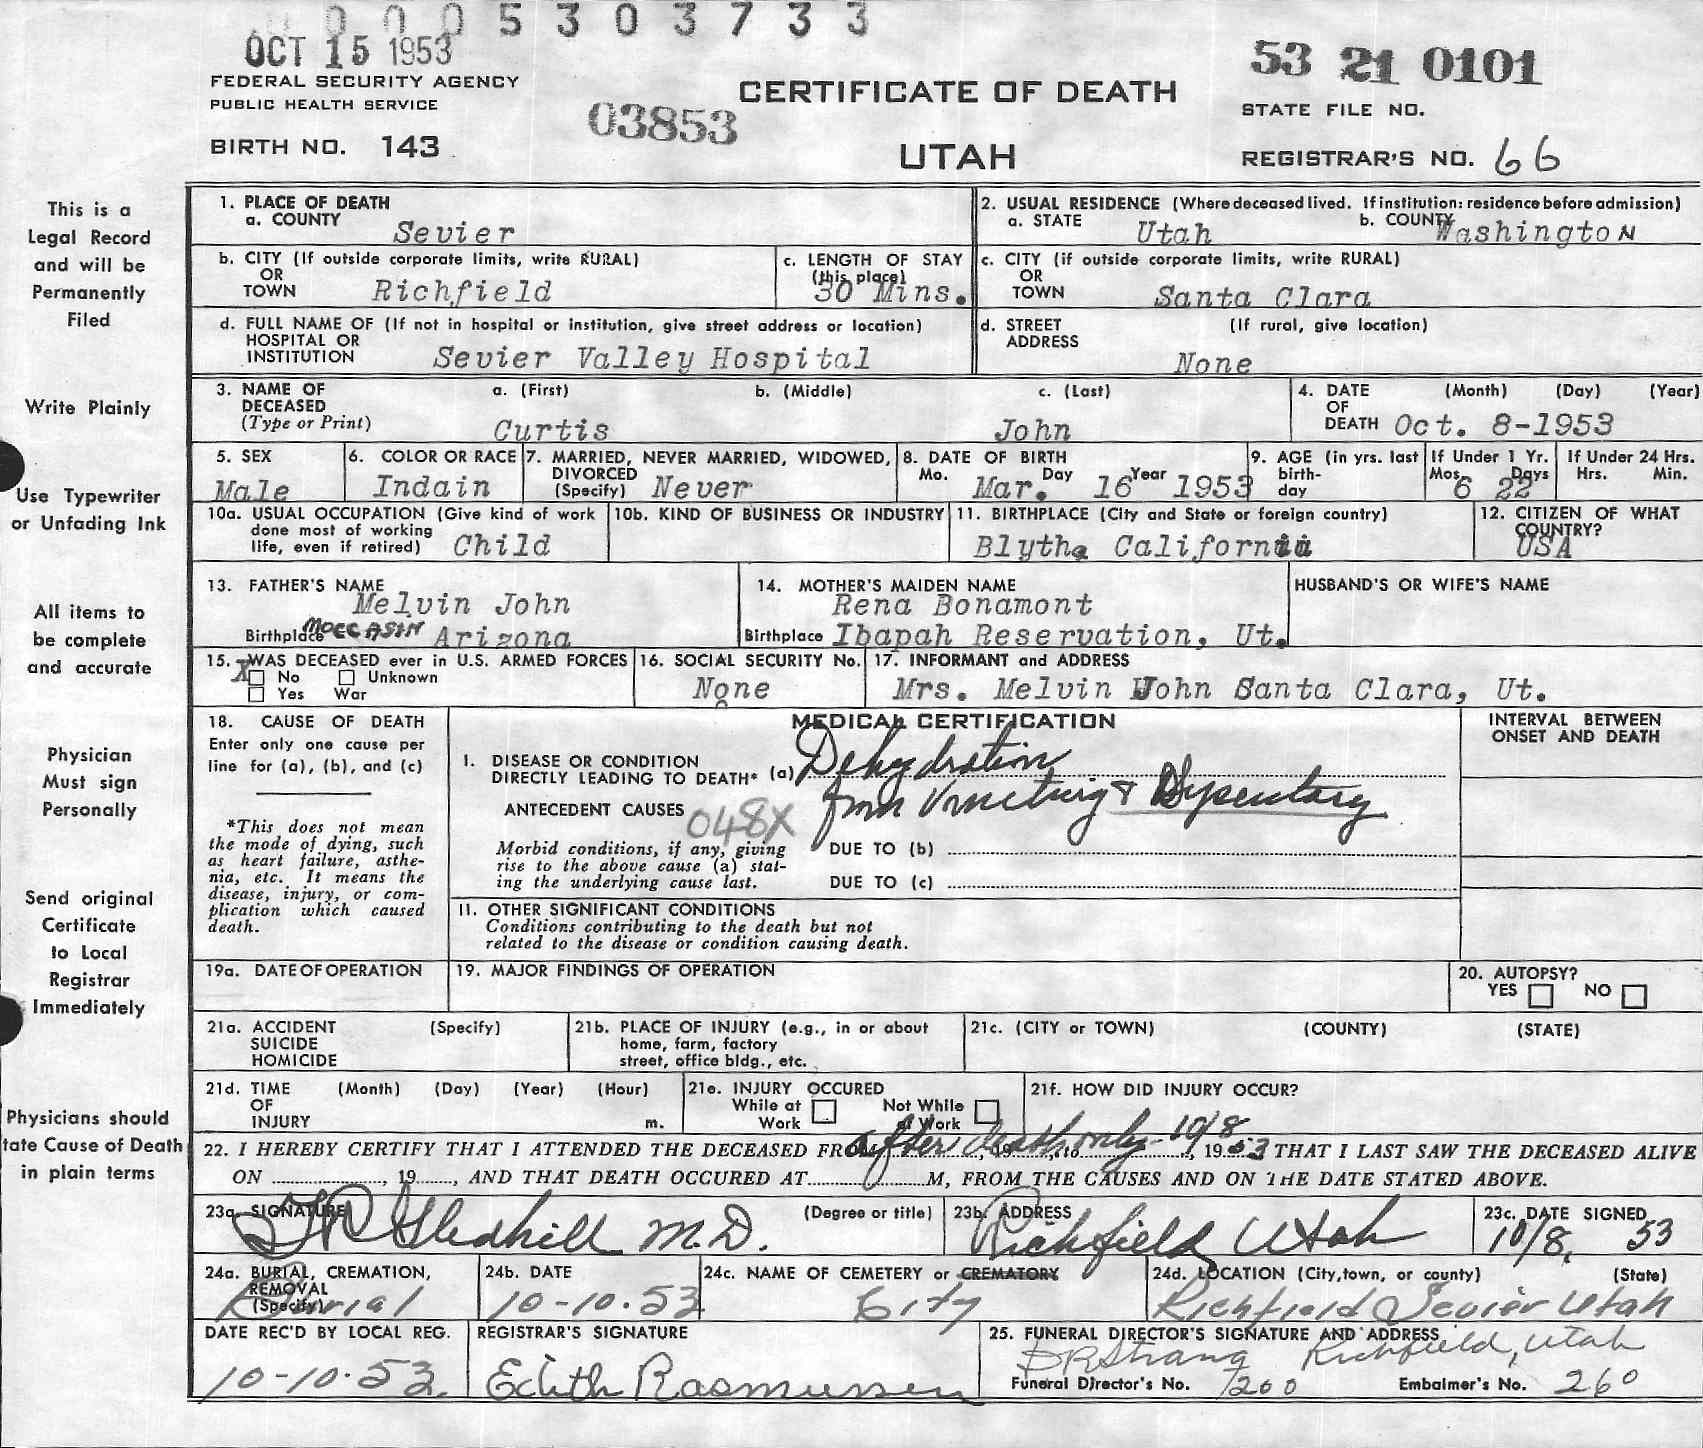 0 0 0 5 3 0 3 7 3 3
OCT 15 1953
53 21 0101
FEDERAL SECURITY AGENCY
PUBLIC HEALTH SERVICE
CERTIFICATE OF DEATH
STATE FILE NO.
03853
BIRTH NO. 143
UTAH
REGISTRAR'S NO. 66
This is a
Legal Record
and will be
Permanently
Filed
Write Plainly
Use Typewriter
or Unfading Ink
All items to
be complete
and accurate
Physician
Must sign
Personally
Send original
Certificate
to Local
Registrar
Immediately
Physicians should
tate Cause of Death
in plain terms
1. PLACE OF DEATH
a. COUNTY Sevier
2. USUAL RESIDENCE (Where deceased lived. If institution: residence before admission)
a. STATE Utah b. COUNTY Washington
b. CITY (If outside corporate limits, write RURAL)
OR
TOWN Richfield
c. LENGTH OF STAY
(this place)
30 Mins.
c. CITY (if outside corporate limits, write RURAL)
OR
TOWN Santa Clara
d. FULL NAME OF (If not in hospital or institution, give street address or location)
HOSPITAL OR
INSTITUTION Sevier Valley Hospital
d. STREET (If rural, give location)
ADDRESS
None
3. NAME OF a. (First) b. (Middle) c. (Last)
DECEASED
(Type or Print) Curtis John
4. DATE (Month) (Day) (Year)
OF
DEATH Oct. 8-1953
5. SEX
Male
6. COLOR OR RACE
Indain
7. MARRIED, NEVER MARRIED, WIDOWED,
DIVORCED
(Specify) Never
8. DATE OF BIRTH
Mo. Day Year
Mar. 16 1953
9. AGE (in yrs. last
birth-
day
If Under 1 Yr.
Mos Days
6 22
If Under 24 Hrs.
Hrs. Min.
10a. USUAL OCCUPATION (Give kind of work
done most of working
life, even if retired) Child
10b. KIND OF BUSINESS OR INDUSTRY
11. BIRTHPLACE (City and State or foreign country)
Blythe California
12. CITIZEN OF WHAT
COUNTRY?
USA
13. FATHER'S NAME
Melvin John
Birthplace MOCCASIN Arizona
14. MOTHER'S MAIDEN NAME
Rena Bonamont
Birthplace Ibapah Reservation, Ut.
HUSBAND'S OR WIFE'S NAME
15. WAS DECEASED ever in U.S. ARMED FORCES
X No Unknown
Yes War
16. SOCIAL SECURITY No.
None
17. INFORMANT and ADDRESS
Mrs. Melvin John Santa Clara, Ut.
18. CAUSE OF DEATH
Enter only one cause per
line for (a), (b), and (c)
*This does not mean
the mode of dying, such
as heart failure, asthe-
nia, etc. It means the
disease, injury, or com-
plication which caused
death.
MEDICAL CERTIFICATION
INTERVAL BETWEEN
ONSET AND DEATH
I. DISEASE OR CONDITION
DIRECTLY LEADING TO DEATH* (a) Dehydration
from Vomiting & Dysentary
ANTECEDENT CAUSES 048X
Morbid conditions, if any, giving
rise to the above cause (a) stat-
ing the underlying cause last.
DUE TO (b)
DUE TO (c)
11. OTHER SIGNIFICANT CONDITIONS
Conditions contributing to the death but not
related to the disease or condition causing death.
19a. DATE OF OPERATION
19. MAJOR FINDINGS OF OPERATION
20. AUTOPSY?
YES NO
21a. ACCIDENT (Specify)
SUICIDE
HOMICIDE
21b. PLACE OF INJURY (e.g., in or about
home, farm, factory
street, office bldg., etc.
21c. (CITY or TOWN) (COUNTY) (STATE)
21d. TIME (Month) (Day) (Year) (Hour)
OF
INJURY m.
21e. INJURY OCCURED
While at Work Not While at Work
21f. HOW DID INJURY OCCUR?
22. I HEREBY CERTIFY THAT I ATTENDED THE DECEASED FROM after death only 19 to 10/8, 1953 THAT I LAST SAW THE DECEASED ALIVE
ON , 19 , AND THAT DEATH OCCURED AT M, FROM THE CAUSES AND ON THE DATE STATED ABOVE.
23a. SIGNATURE (Degree or title)
Gledhill M.D.
23b. ADDRESS
Richfield Utah
23c. DATE SIGNED
10/8, 53
24a. BURIAL, CREMATION,
REMOVAL
(Specify)
Burial
24b. DATE
10-10-53
24c. NAME OF CEMETERY or CREMATORY
City
24d. LOCATION (City, town, or county) (State)
Richfield Sevier Utah
DATE REC'D BY LOCAL REG.
10-10-53
REGISTRAR'S SIGNATURE
Edith Rasmussen
25. FUNERAL DIRECTOR'S SIGNATURE AND ADDRESS
Richfield, Utah
Funeral Director's No. 1200 Embalmer's No. 260